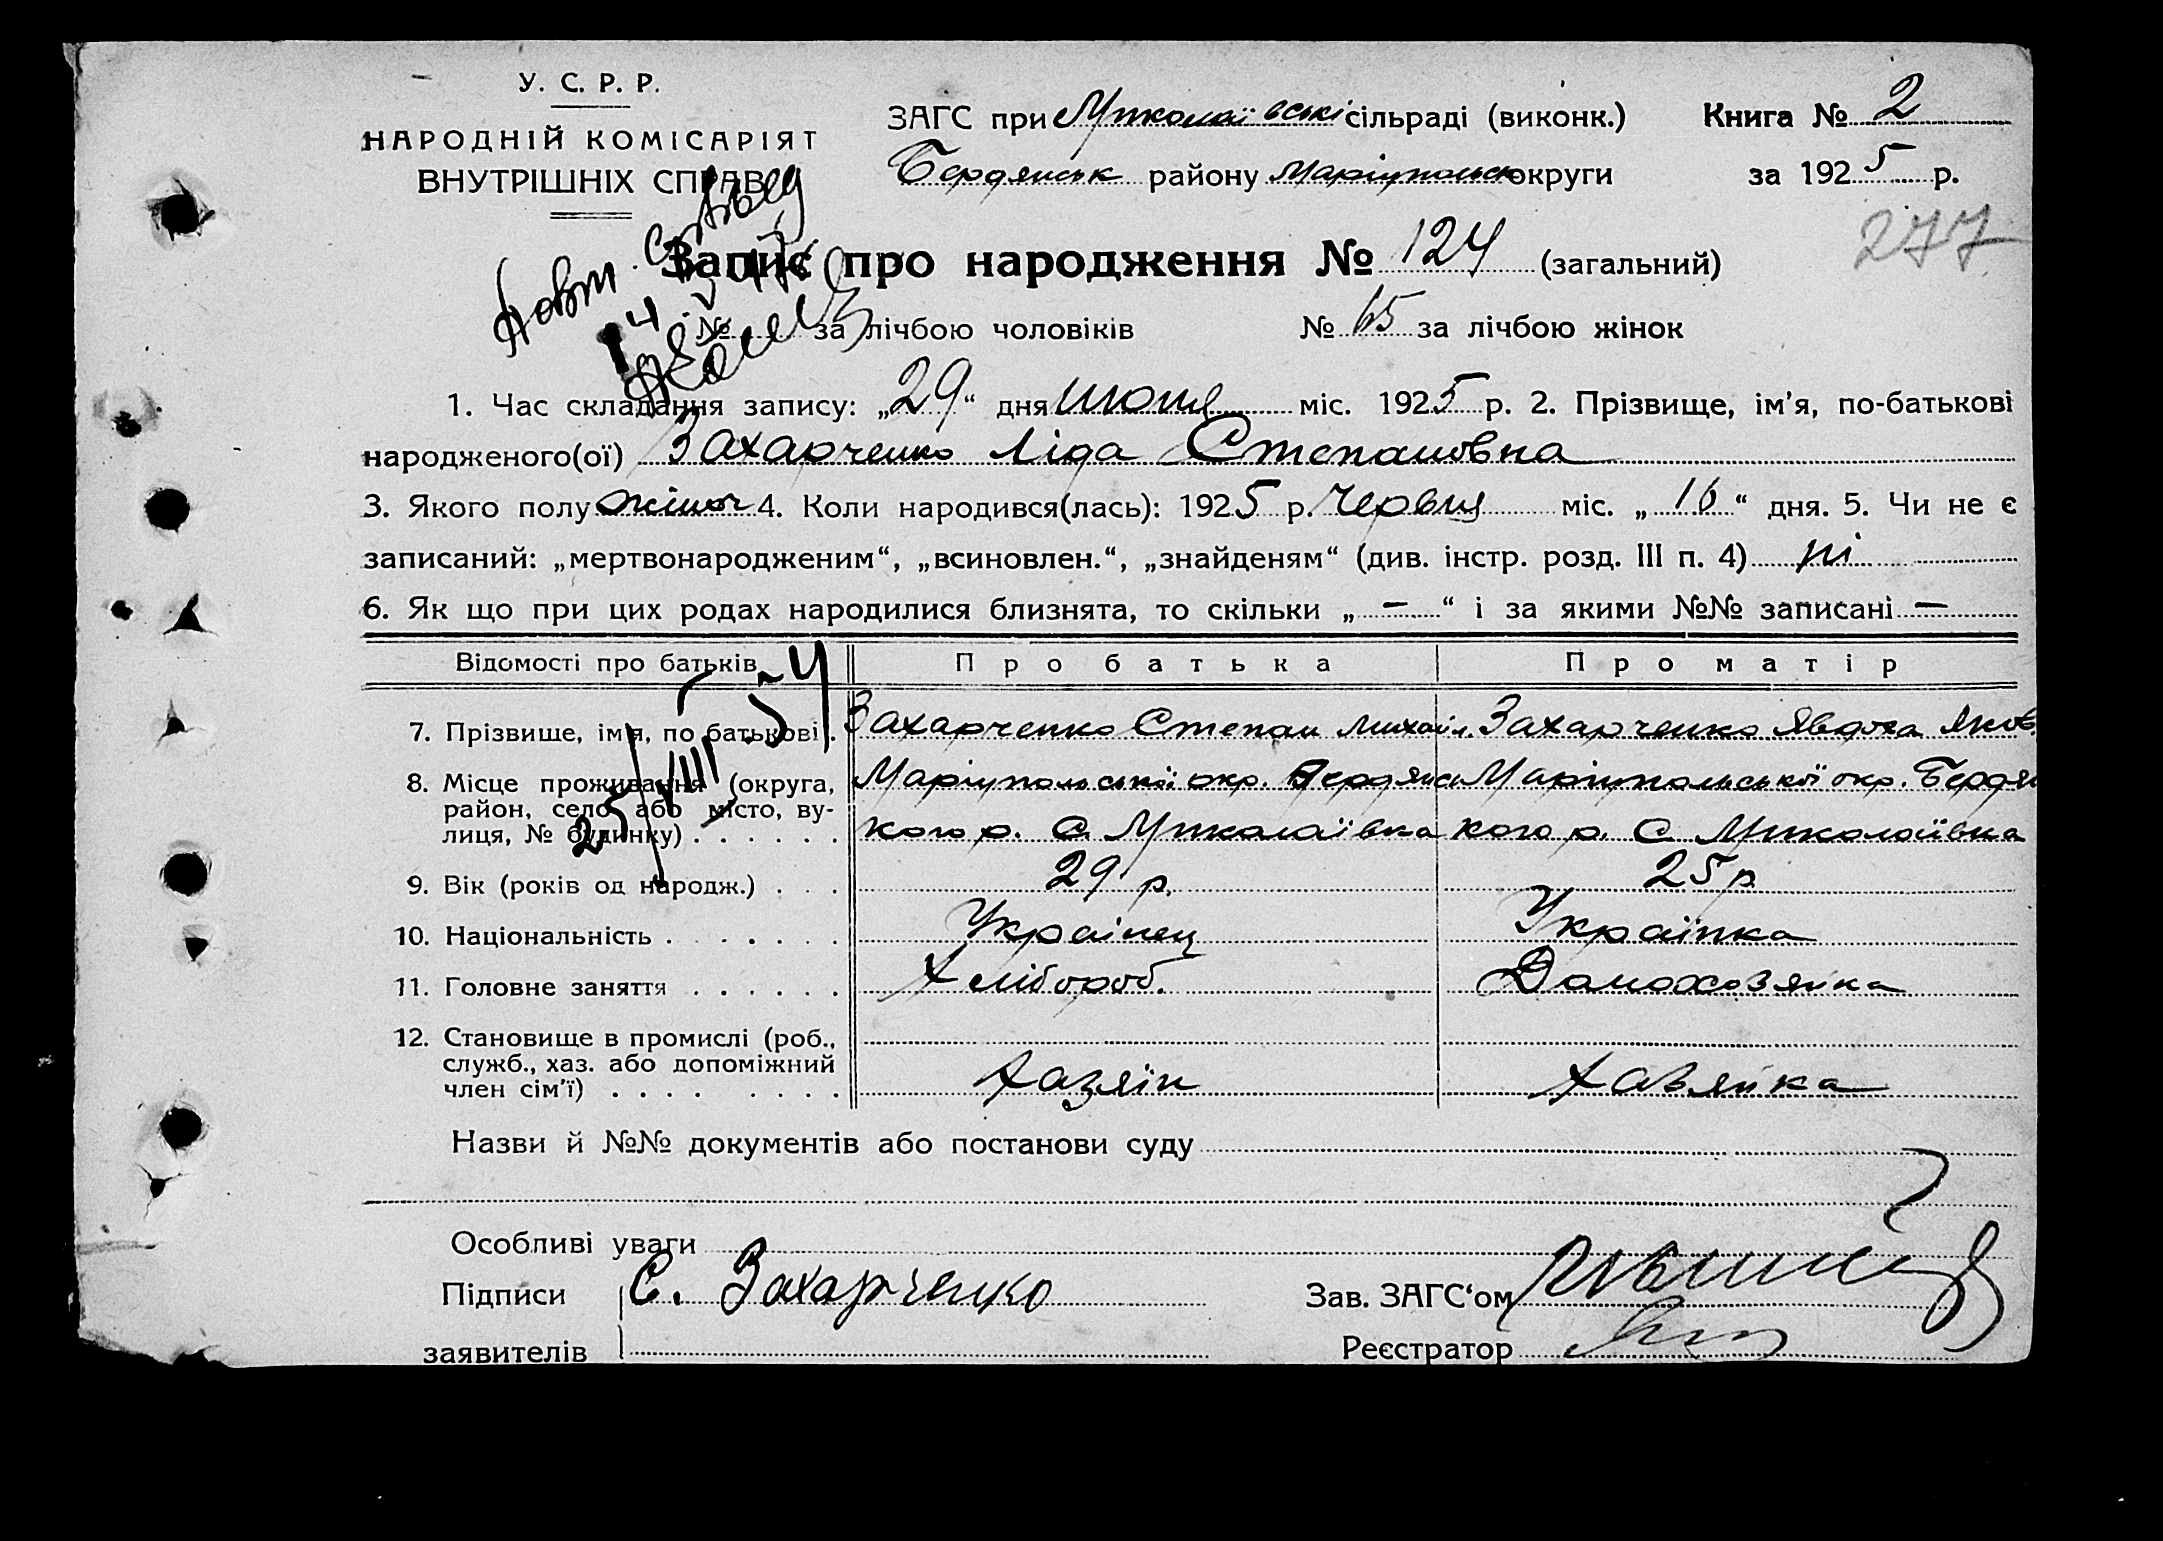 У. С. Р. Р.
НАРОДНІЙ КОМІСАРІЯТ
ВНУТРІШНІХ СПРАВ
ЗАГС при Миколаївські сільраді (виконк.) Книга № 2
Бердянськ району Маріупольськ округи за 1925 р.
277
Запис про народження № 124 (загальний)
№ за лічбою чоловіків № 65 за лічбою жінок
1. Час складання запису: „29“ дня июня міс. 1925 р. 2. Прізвище, ім'я, по-батькові
народженого(ої) Захарченко Ліда Степановна
3. Якого полу жіноч 4. Коли народився(лась): 1925 р. Червня міс. „16“ дня. 5. Чи не є
записаний: „мертвонародженим“, „всиновлен.“, „знайденям“ (див. інстр. розд. III п. 4) ні
6. Як що при цих родах народилися близнята, то скільки „ — “ і за якими №№ записані —
Відомості про батьків Про батька Про матір
25/VIII 54
7. Прізвище, ім'я, по батькові . Захарченко Степан Михайл. Захарченко Явдоха Яков.
8. Місце проживання (округа, район, село або місто, вулиця, № будинку) . . . . . .
Маріупольської окр. Бердянсь Маріупольської окр. Бердян
кого р. С. Миколаївка кого р. С. Миколаївка
9. Вік (років од народж.) . . . 29 р. 25 р
10. Національність . . . . . . . Українец Українка
11. Головне заняття . . . . . . Хлібороб. Домохозяйка
12. Становище в промислі (роб.,
служб., хаз. або допоміжний
член сім'ї) . . . . . . . . Хазяїн Хазяйка
Назви й №№ документів або постанови суду
Особливі уваги
Підписи С. Захарченко Зав. ЗАГС'ом
заявителів Реєстратор